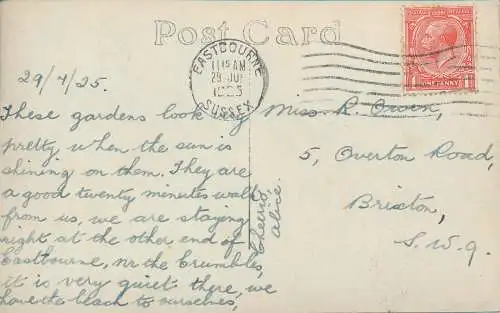 Post Card
EASTBOURNE
11 15 AM
29 JU
1925
SUSSEX
POSTAGE REVENUE
ONE PENNY
29/7/25.
These gardens look
pretty when the sun is
shining on them. They are
a good twenty minutes walk
from us, we are staying
right at the other end of
Eastbourne, nr the Crumbles,
it is very quiet there, we
have the beach to ourselves,
Cheerio,
Alice.
Miss. R. Owen,
5, Overton Road,
Brixton,
S.W.9.